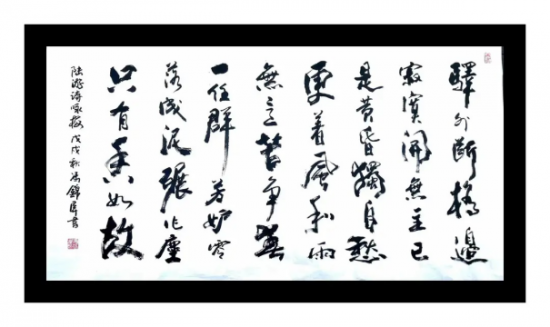 驛外斷橋邊
寂寞開無主已
是黄昏獨自愁
更着風和雨
無意苦爭春
一任群芳妒零
落成泥碾作塵
只有香如故
陸游詩咏梅 戊戌秋 錦 書